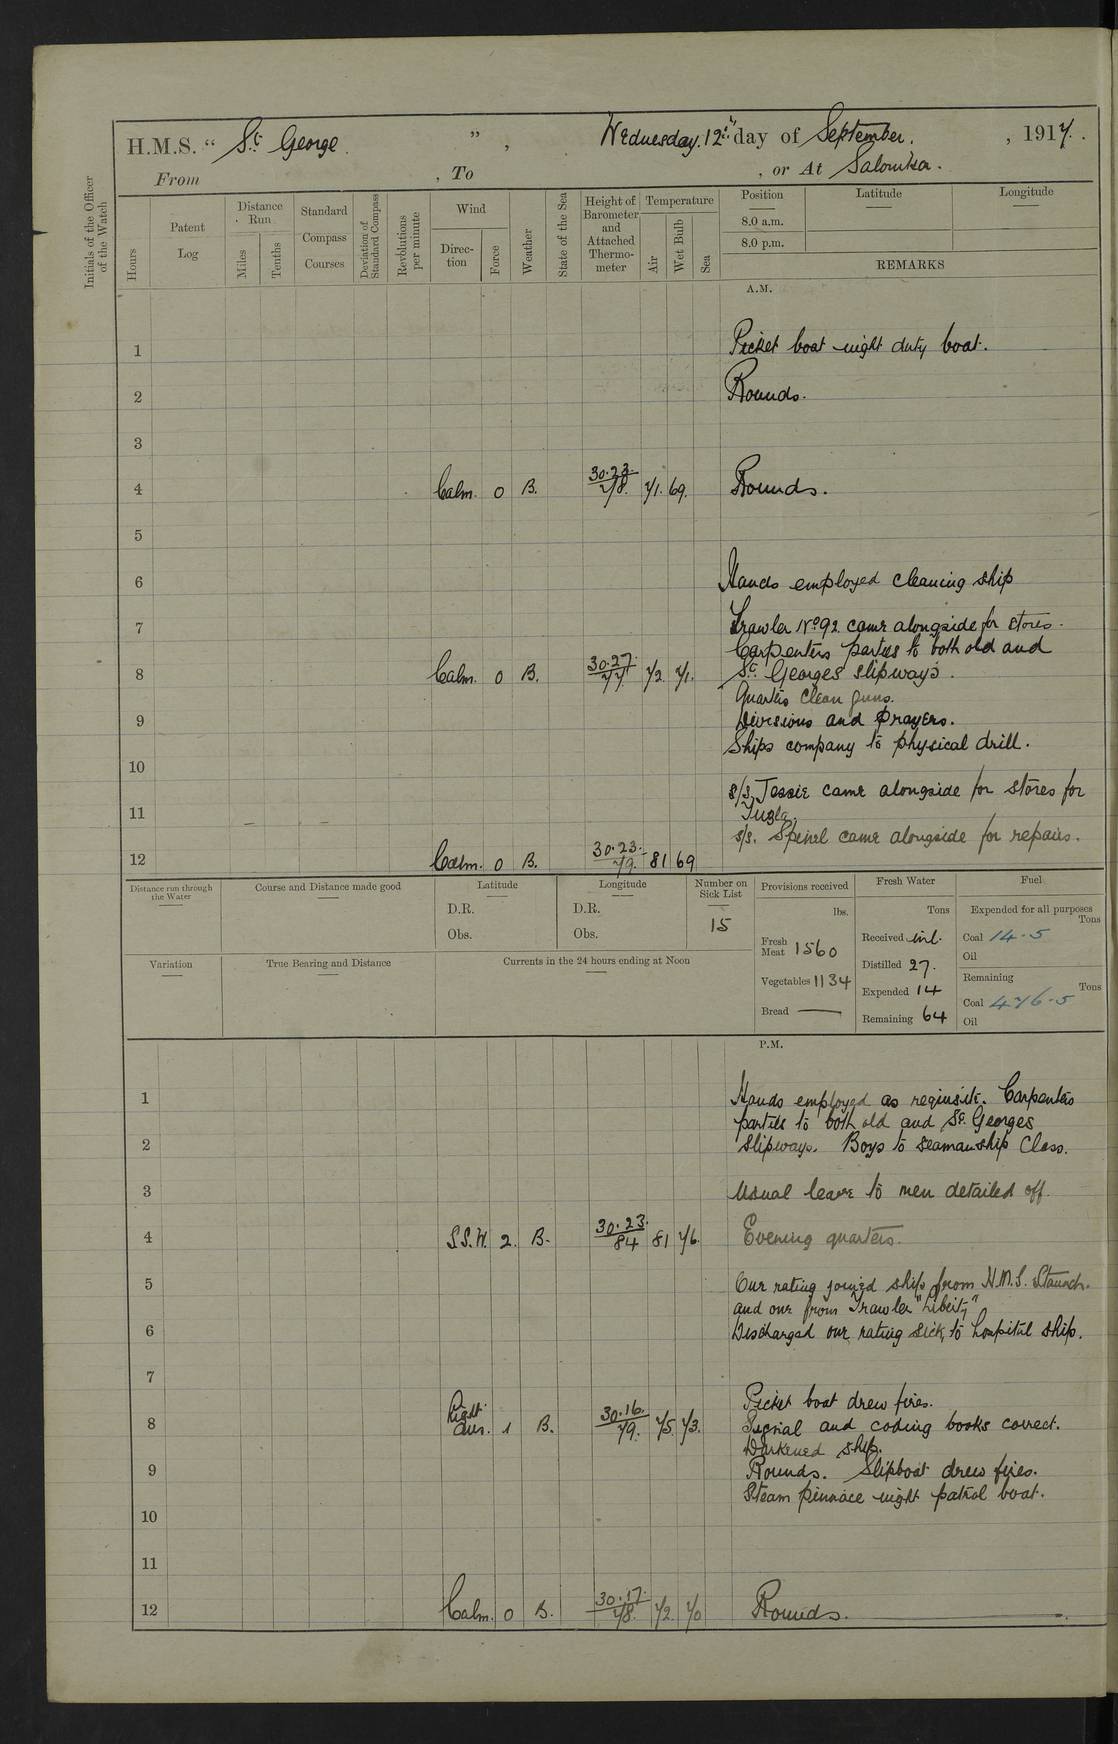 H.M.S. “ St. George ”, Wednesday. 12th day of September. , 1917.
From , To , or At Salonika.
Initials of the Officer of the Watch
Hours
Patent Log
Distance Run
Miles
Tenths
Standard Compass Courses
Deviation of Standard Compass
Revolutions per minute
Wind
Direction
Force
Weather
State of the Sea
Height of Barometer and Attached Thermometer
Temperature
Air
Wet Bulb
Sea
Position
Latitude
Longitude
8.0 a.m.
8.0 p.m.
REMARKS
A.M.
1 Picket boat night duty boat.
2 Rounds.
3
4 Calm. 0 B. 30.23. 78. 71. 69. Rounds.
5
6 Hands employed cleaning ship
7 Trawler No 92 came alongside for stores.
Carpenters parties to both old and
8 Calm. 0 B. 30.27. 77. 72. 71. St. Georges slipways.
Quarters clean guns.
9 Divisions and Prayers.
Ships company to physical drill.
10
s/s. Jessie came alongside for stores for
11 – – Tuzla.
s/s. Spinel came alongside for repairs.
12 Calm. 0 B. 30.23. 79. 81 69
Distance run through the Water
Course and Distance made good
Latitude
D.R.
Obs.
Longitude
D.R.
Obs.
Number on Sick List
15
Provisions received
lbs.
Fresh Meat 1560
Vegetables 1134
Bread —
Fresh Water
Tons
Received nil.
Distilled 27.
Expended 14
Remaining 64
Fuel
Expended for all purposes
Tons
Coal 14.5
Oil
Remaining
Tons
Coal 476.5
Oil
Variation
True Bearing and Distance
Currents in the 24 hours ending at Noon
P.M.
1 Hands employed as requisite. Carpenters
parties to both old and St. Georges
2 slipways. Boys to seamanship Class.
3 Usual leave to men detailed off.
4 S.S.W. 2. B. 30.23. 84 81 76. Evening quarters.
5 One rating joined ship from H.M.S. Staunch.
and one from Trawler "Liberty"
6 Discharged one rating sick, to hospital ship.
7
Picket boat drew fires.
8 Light airs. 1 B. 30.16. 79. 75 73. Signal and coding books correct.
Darkened ship.
9 Rounds. Slipboat drew fires.
Steam pinnace night patrol boat.
10
11
12 Calm. 0 B. 30.17. 78. 72. 70 Rounds.